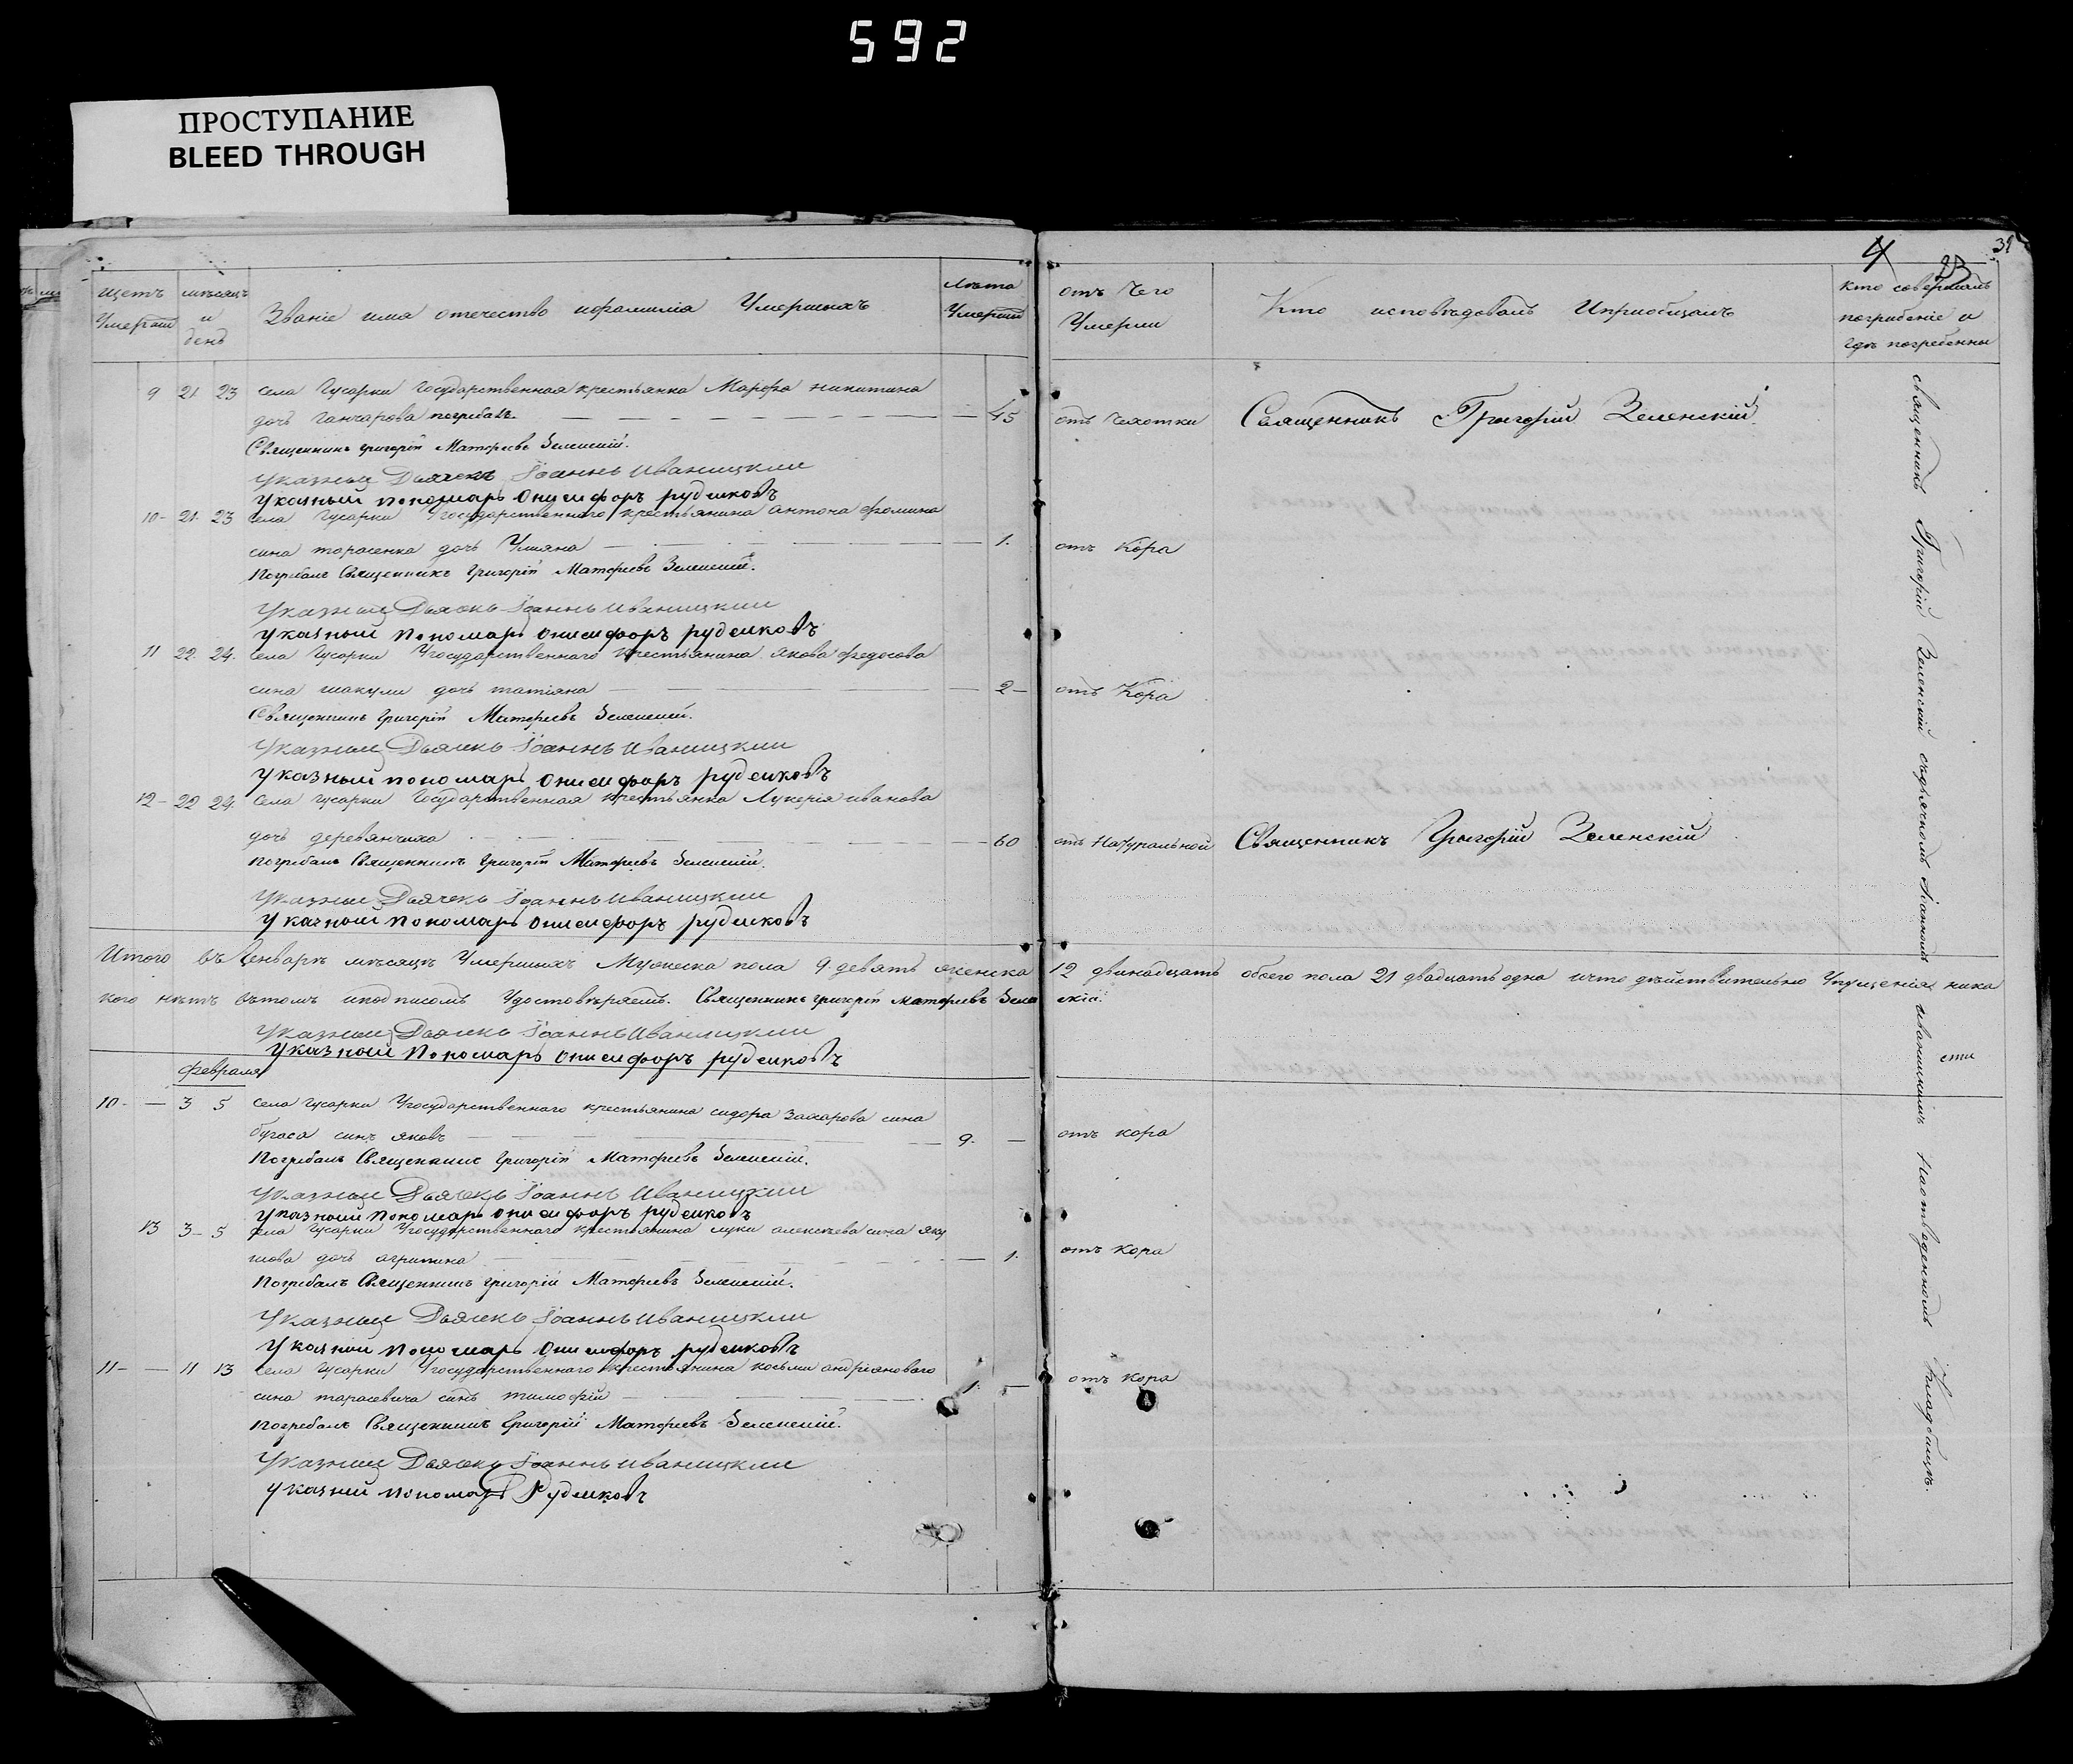 592
ПРОСТУПАНИЕ
BLEED THROUGH
4
23
39
щетъ Умерши
мѣсяцъ и день
Званіе имя отечество ифамиліа Умершихъ
Лѣта Умерши
отъ Чего Умерли
Кто исповѣдовалъ Иприобщалъ
Кто совершалъ погрибеніе и гдѣ погребенны
9 21. 23 села Гусарки Государственная крестьянка Марфа никитина
дочь ганчарова погребалъ. 45 отъ Чехотки Священникъ Григорій Зеленскій.
Священникъ григорій Матфіевъ Зеленскій.
Указный Дьячекъ Іоаннъ Иваницкии
Указный пономарь Онисифоръ рудиковъ
10- 21. 23 села Гусарки Государственнаго крестьянина антона фомина
сина тарасенка дочь Улияна 1. отъ Кора
Погребалъ Священникъ Григорій Матфіевъ Зеленскій.
Указный Дьячекъ Іоаннъ Иваницкии
Указный пономарь Онисифоръ рудиковъ
11 22. 24. села Гусарки Государственнаго крестьянина якова федосова
сина шакули дочь татіяна 2- отъ Кора
Священникъ Григорій Матфіевъ Зеленскій.
Указный Дьячекъ Іоаннъ Иваницкии
Указный пономарь Онисифоръ рудиковъ
12- 22 24. села гусарки Государственная крестьянка Лукерія иванова
дочь деревянчиха 60 отъ Натуральной Священникъ Григорій Зеленскій
погребалъ Священникъ Григорій Матфіевъ Зеленскій.
Указный Дьячекъ Іоаннъ Иваницкии
Указный пономарь Онисифоръ рудиковъ
Итого въ Генварѣ мѣсяцѣ Умершихъ Мужеска пола 9 девять женска 12 двинадцать обоего пола 21 двадцать одна ичто дѣйствительно Упущенія ника
кого нѣтъ вътомъ иподписомъ Удостовѣряемъ. Священникъ григорій матфіевъ Зеленскій.
Указный Дьячекъ Іоаннъ Иваницкии
Указный Пономарь Онисифоръ рудиковъ
Февраля
10- — 3 5 села гусарки Государственнаго крестьянина сидора Захарова сина
бугаса синъ яковъ 9. — отъ кора
Погребалъ Священникъ Григорій Матфіевъ Зеленскій.
Указный Дьячекъ Іоаннъ Иваницкии
Указный пономарь Онисифоръ рудиковъ
13 3- 5 села Гусарки Государственнаго крестьянина луки алексѣева сина яку
шова дочь агрипина — 1. отъ кора
Погребалъ Священникъ григорій Матфіевъ Зеленскій.
Указный Дьячекъ Іоаннъ Иваницкии
Указный пономарь Онисифоръ рудиковъ
11- — 11 13 села Гусарки Государственнаго крестьянина косьми андріяноваго
сина тарасевича синъ тимофій 1. — отъ кора
погребалъ Священникъ Григорій Матфіевъ Зеленскій.
Указный Дьячекъ Іоаннъ Иваницкии
Указный пономарь Рудиковъ
Священникъ Григорій Зеленскій съдьячкомъ Іоанномъ иваницкимъ наотведенномъ Кладбищѣ.